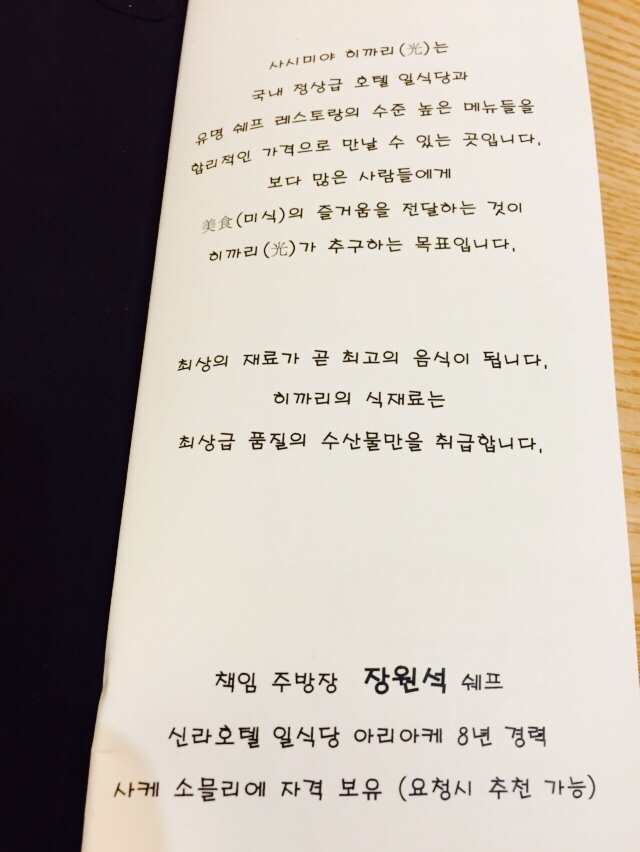 사시미야 히까리(光)는
국내 정상급 호텔 일식당과
유명 쉐프 레스토랑의 수준 높은 메뉴들을
합리적인 가격으로 만날 수 있는 곳입니다.
보다 많은 사람들에게
美食(미식)의 즐거움을 전달하는 것이
히까리(光)가 추구하는 목표입니다.
최상의 재료가 곧 최고의 음식이 됩니다.
히까리의 식재료는
최상급 품질의 수산물만을 취급합니다.
책임 주방장 장원석 쉐프
신라호텔 일식당 아리아케 8년 경력
사케 소믈리에 자격 보유 (요청시 추천 가능)